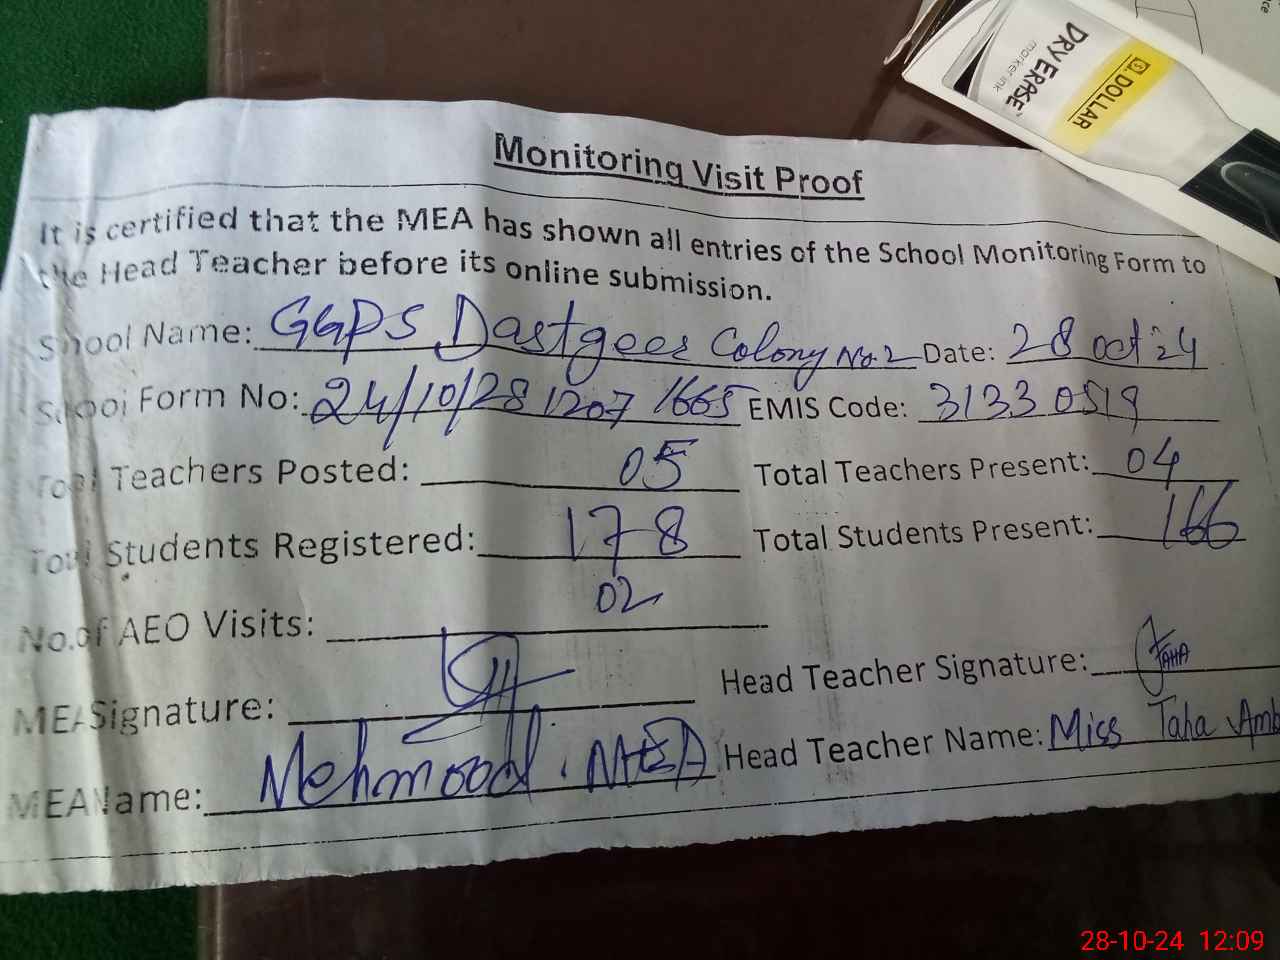 DRY ERASE
marker ink
DOLLAR
Monitoring Visit Proof
It is certified that the MEA has shown all entries of the School Monitoring Form to
the Head Teacher before its online submission.
School Name: GGPS Dastgeer Colony No.2 Date: 28 oct 24
School Form No: 24/10/28 1207 1665 EMIS Code: 31330519
Total Teachers Posted: 05 Total Teachers Present: 04
Total Students Registered: 178 Total Students Present: 166
No.of AEO Visits: 02
MEA Signature: Head Teacher Signature: TAHA
MEA Name: Mehmood . MEA Head Teacher Name: Miss Taha Amb
28-10-24 12:09